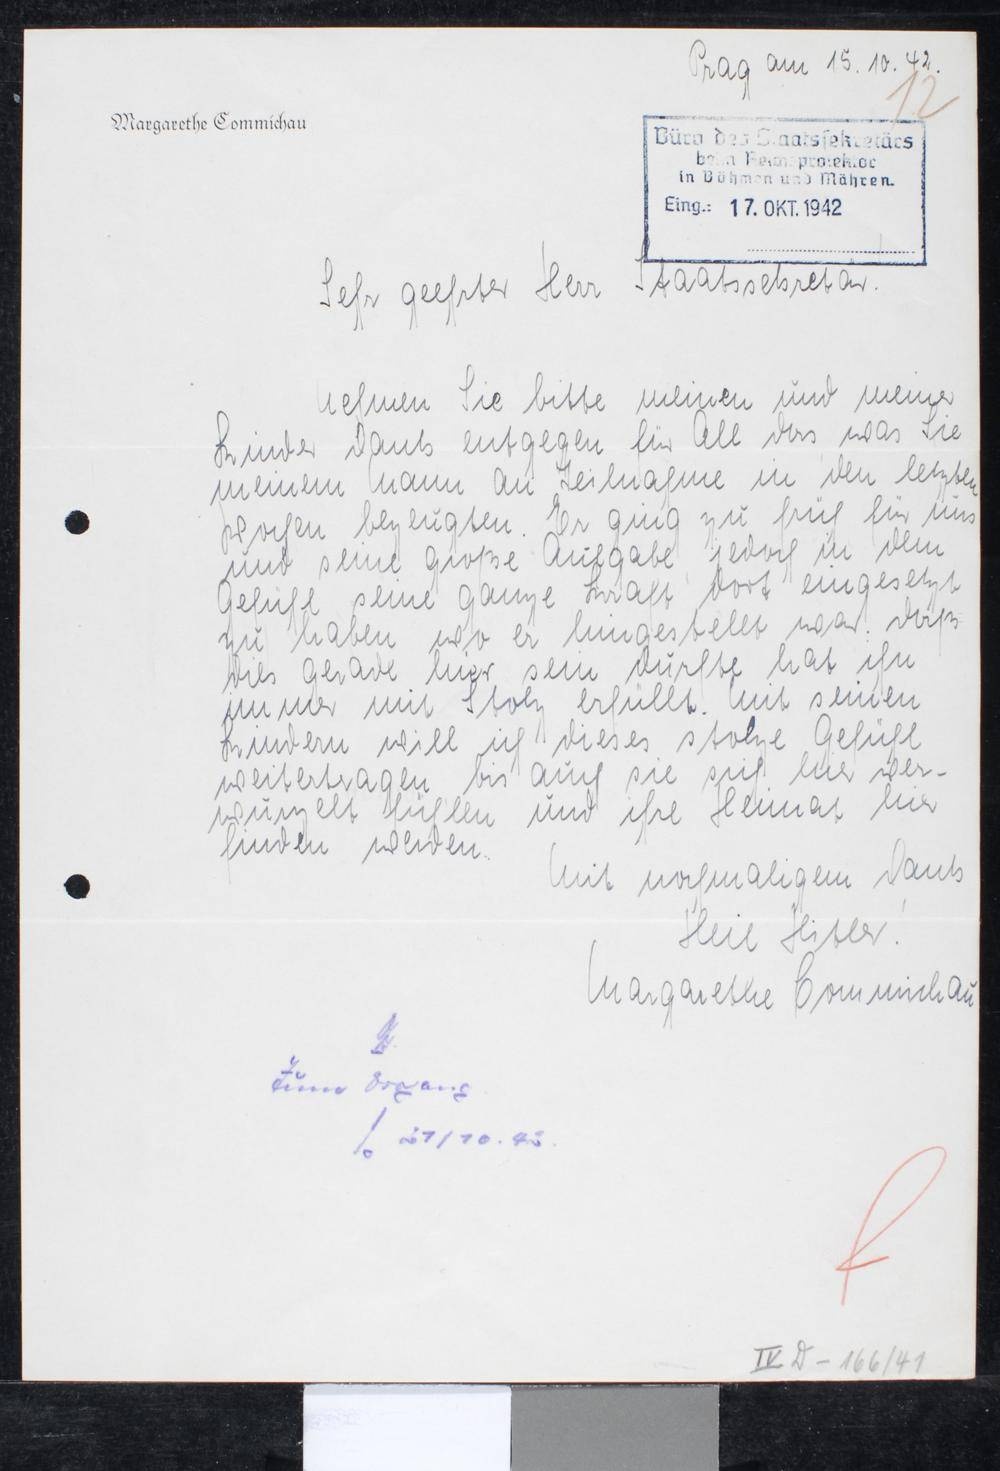 Prag am 15. 10. 42.
12
Margarethe Commichau
Büro des Staatssekretärs
beim Reichsprotektor
in Böhmen und Mähren.
Eing.: 17. OKT. 1942
Sehr geehrter Herr Staatssekretär.
Nehmen Sie bitte meinen und meiner
Kinder Dank entgegen für All das was Sie
meinem Mann an Teilnahme in den letzten
Wochen bezeugten. Er ging zu früh für uns
und seine große Aufgabe jedoch in dem
Gefühl seine ganze Kraft dort eingesetzt
zu haben wo er hingestellt war. Daß
dies gerade hier sein durfte hat ihn
immer mit Stolz erfüllt. Mit seinen
Kindern will ich dieses stolze Gefühl
weitertragen bis auch sie sich hier ver-
wurzelt fühlen und ihre Heimat hier
finden werden.
Mit nochmaligem Dank
Heil Hitler!
Margarethe Commichau
Zum Vorgang
21/10.42.
IV D - 166/41